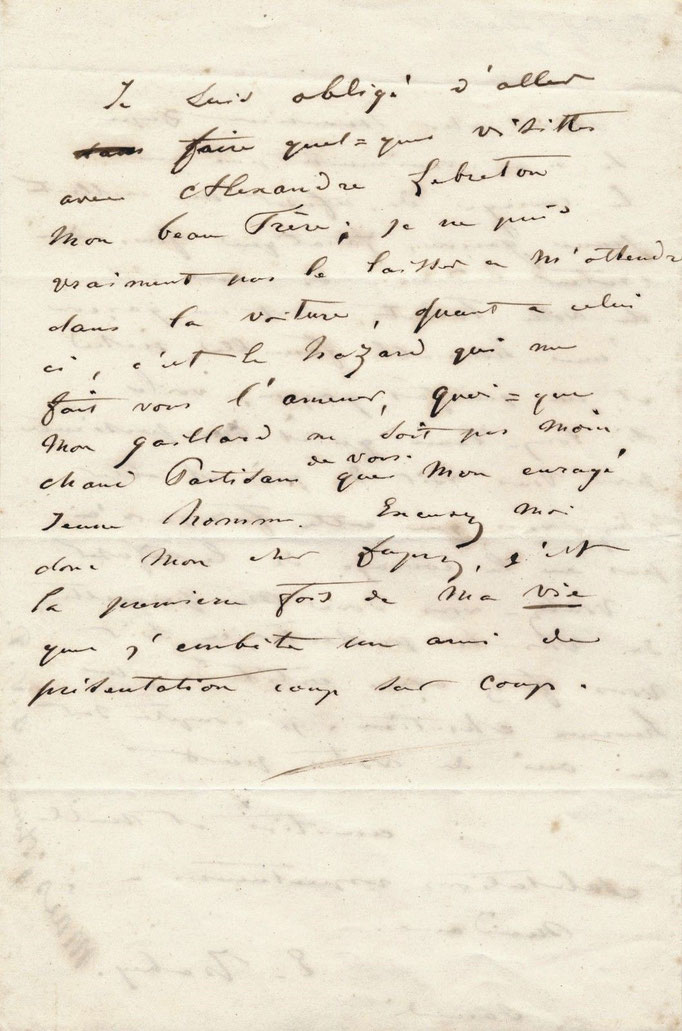 Je suis obligé d'aller
faire quel=ques visittes
avec Alexandre Lebreton
mon beau Frère; je ne puis
vraiment pas le laisser a m'attendre
dans la voiture, quant a celui
ci, c'est le hazard qui me
fait vous l'amener, quoi=que
mon gaillard ne soit pas moin
chaud Partisans de vous que mon enragé
Jeune homme. Excusez moi
donc mon cher, c'est
la premiere fois de ma vie
que j'embête un ami de
présentation coup sur coup.